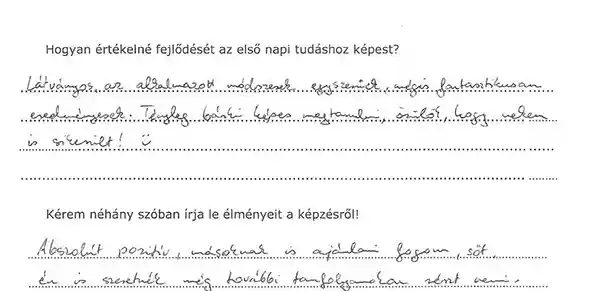 Hogyan értékelné fejlődését az első napi tudáshoz képest?
Látványos, az alkalmazott módszerek egyszerűek, mégis fantasztikusan
eredményesek. Tényleg bárki képes megtanulni, örülök, hogy nekem
is sikerült! ☺
Kérem néhány szóban írja le élményeit a képzésről!
Abszolút pozitív, másoknak is ajánlani fogom, sőt,
én is szeretnék még további tanfolyamokon részt venni.